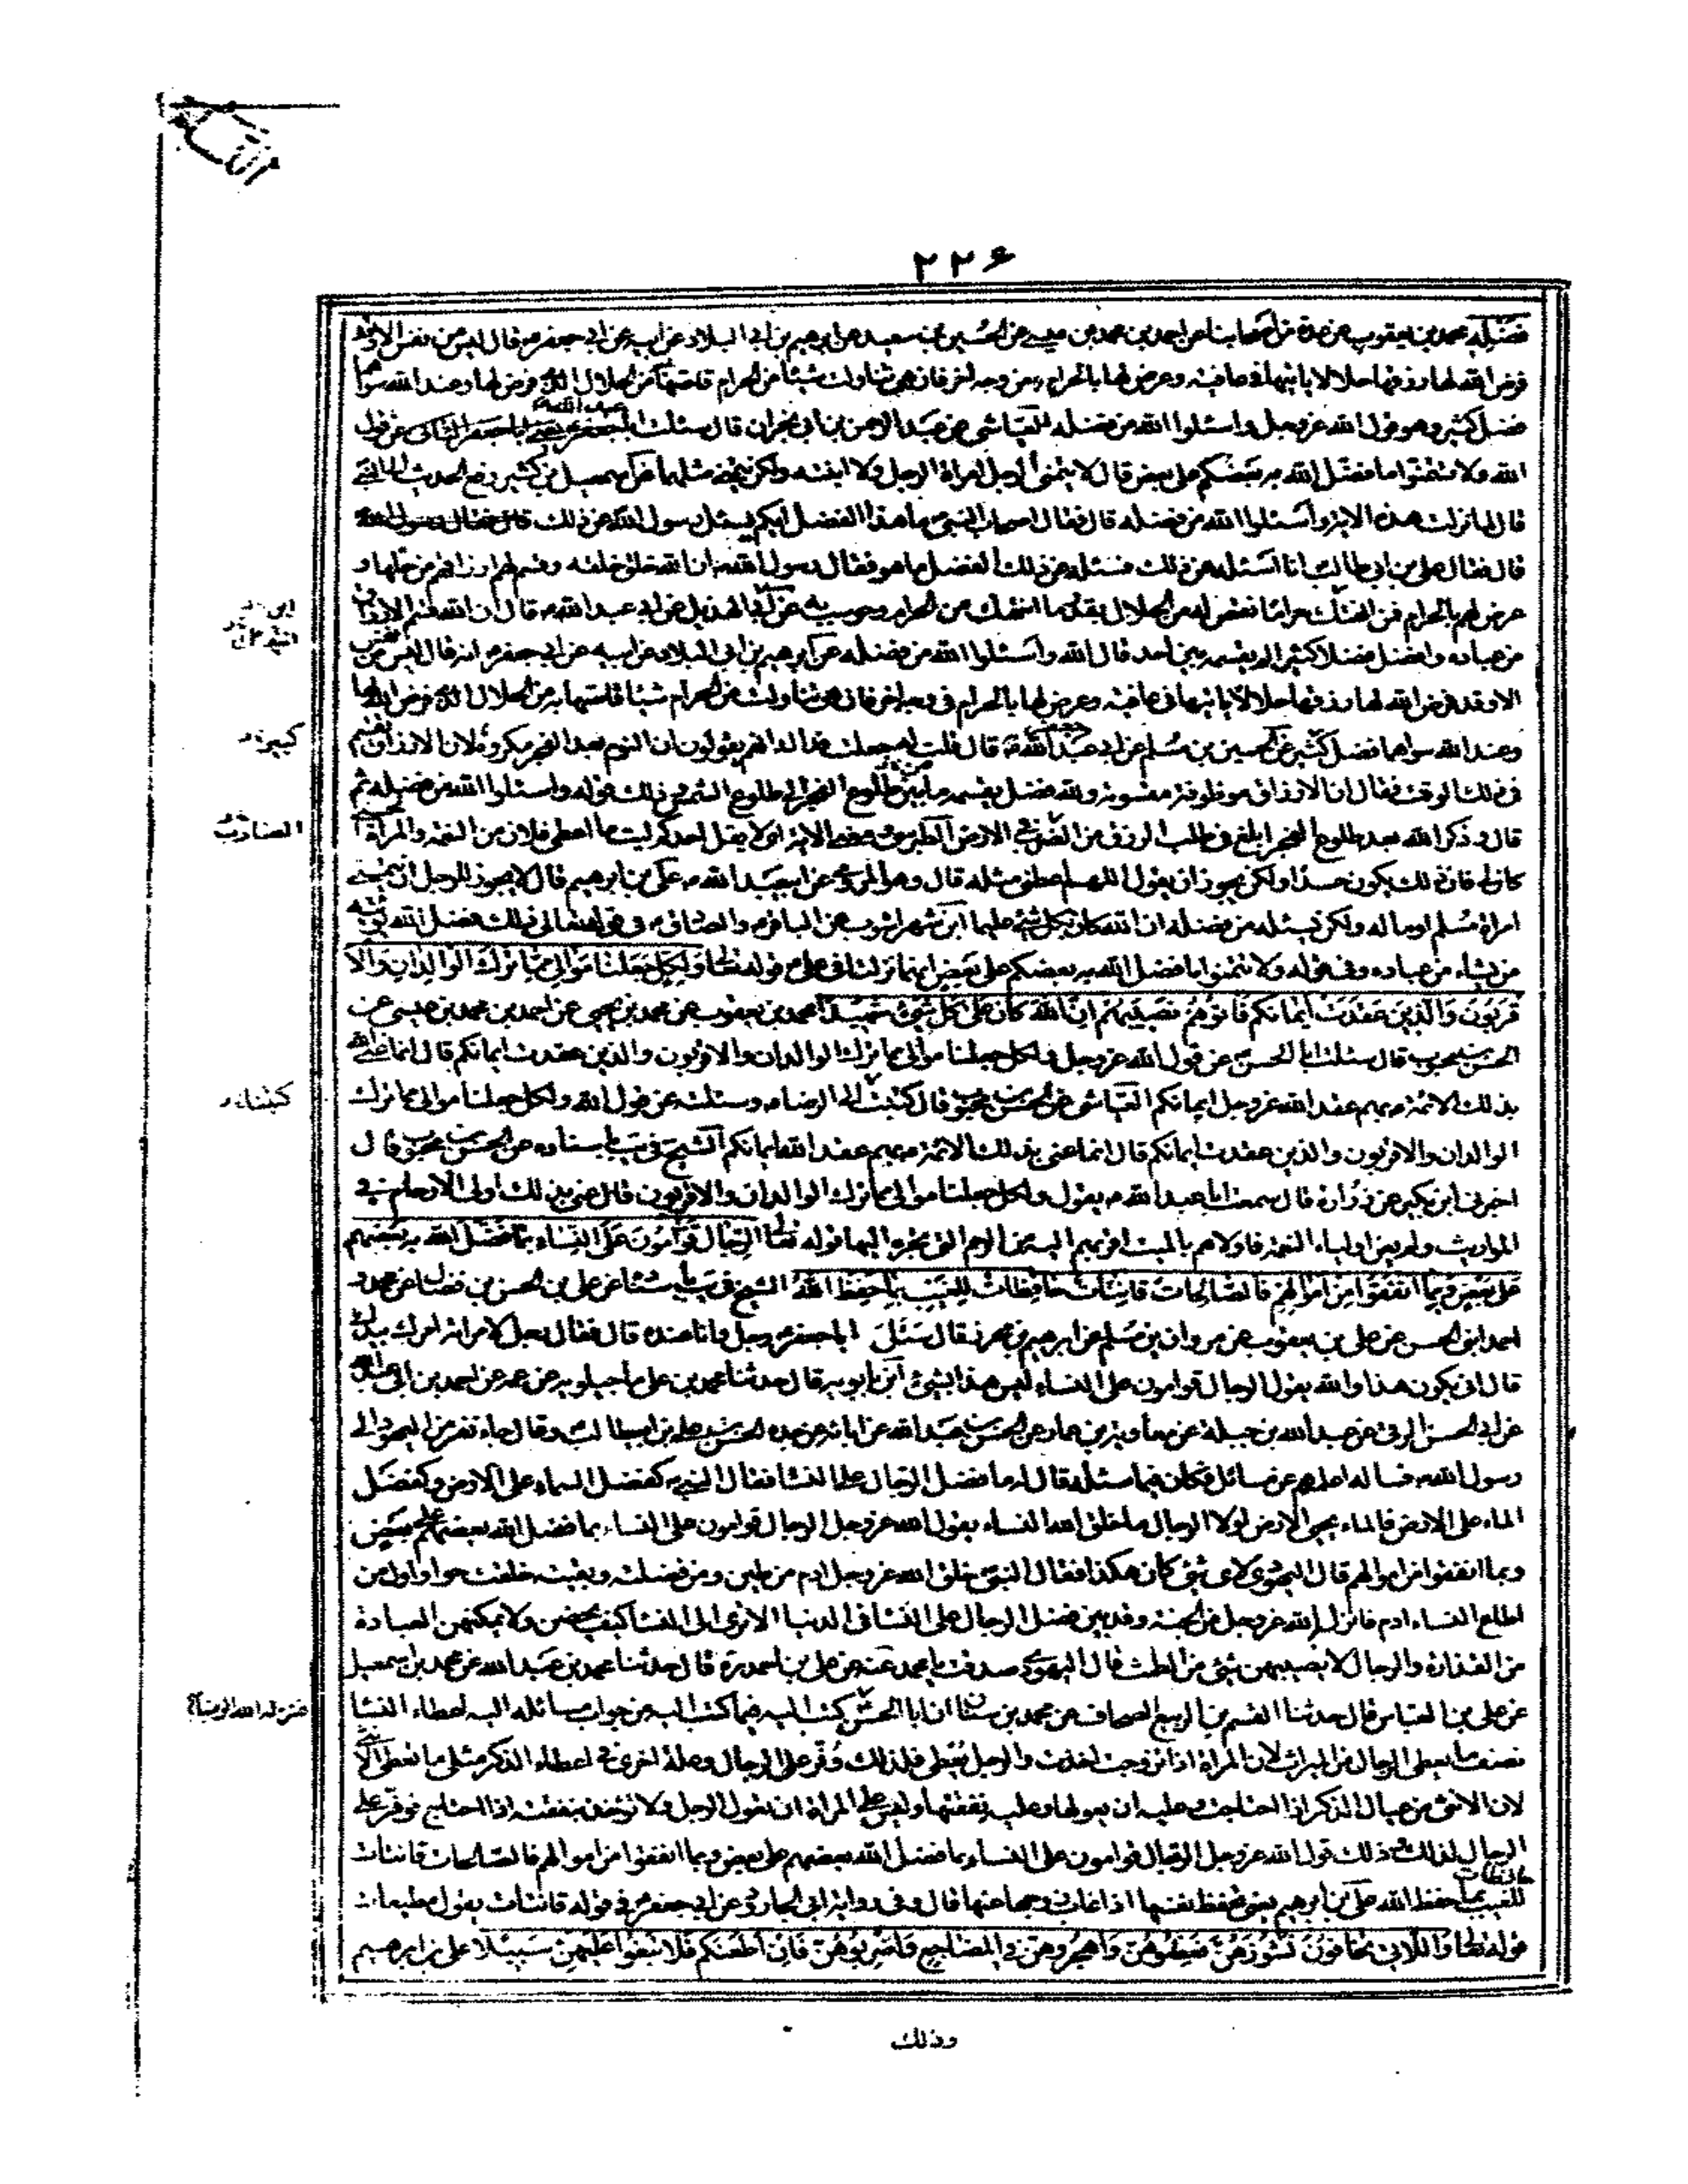 ٢٢٦
فضله محمد بن يعقوب عن عدة من اصحابنا عن احمد بن محمد بن عيسى عن الحسين بن سعيد عن ابرهيم بن ابى البلاد عن ابيه عن ابى جعفر قال ليس من نفس الا وقد
فرض الله لها رزقها حلالا ياتيها فى عافية وعرض لها بالحرام من وجه اخر فان هى تناولت شيئا من الحرام قاصها من الحلال الذى فرض لها وعند الله سواهما
فضل كثير وهو قول الله عز وجل واسئلوا الله من فضله العياشى عن عبد الرحمن بن ابى نجران قال سئلت ابا جعفر الثانى عن قول
الله ولا تتمنوا ما فضل الله به بعضكم على بعض قال لا يتمنى الرجل امراة الرجل ولا ابنته ولكن يتمنى مثلهما عن اسمعيل بن كثير رفع الحديث الى النبى
قال لما نزلت هذه الاية واسئلوا الله من فضله قال فقال اصحاب النبى ما هذا الفضل ايكم يسئل رسول الله عن ذلك قال فقال
قال فقال على بن ابى طالب انا اسئله عن ذلك فسئله عن ذلك الفضل ما هو فقال رسول الله ان الله خلق خلقه وقسم لهم ارزاقهم من حلها و
عرض لهم بالحرام فمن انتهك حراما نقص له من الحلال بقدر ما انتهك من الحرام وحوسب به عن ابى الهذيل عن ابى عبد الله قال ان الله قسم الارزاق
من عباده وافضل فضلا كثيرا لم يقسمه بين احد قال الله واسئلوا الله من فضله عن ابرهيم بن ابى البلاد عن ابيه عن ابى جعفر انه قال ليس من نفس
الا وقد فرض الله لها رزقها حلالا ياتيها فى عافية وعرض لها بالحرام فى وجه اخر فان هى تناولت من الحرام شيئا قاصها به من الحلال الذى فرض الله لها
وعند الله سواهما فضل كثير عن الحسين بن مسلم عن ابى قال قلت له جعلت فداك انهم يقولون ان النوم بعد الفجر مكروه لان الارزاق تقسم
فى ذلك الوقت فقال ان الارزاق موظوفة مقسومة ولله فضل يقسمه ما بين طلوع الفجر الى طلوع الشمس وذلك قوله واسئلوا الله من فضله ثم
قال وذكر الله بعد طلوع الفجر ابلغ فى طلب الرزق من الضرب فى الارض الطبرسى فى معنى الاية اى لا يقل احدكم ليت ما اعطى فلان من النعمة والمراة
كان لى فان ذلك يكون حسدا ولكن يجوز ان يقول اللهم اعطنى مثله قال وهو المروى عن ابى عبد الله على بن ابرهيم قال لا يجوز للرجل ان يتمنى
امراة مسلم او ماله ولكن يسئله من فضله ان الله كان بكل شىء عليما ابن شهر اشوب عن الباقر والصادق فى قوله تعالى ذلك فضل الله يؤتيه
من يشاء من عباده وفى قوله ولا تتمنوا ما فضل الله به بعضكم على بعض انهما نزلتا فى على قوله تعالى وَلِكُلٍّ جَعَلْنَا مَوَالِيَ مِمَّا تَرَكَ الْوَالِدَانِ وَالْأَ
قْرَبُونَ وَالَّذِينَ عَقَدَتْ أَيْمَانُكُمْ فَآتُوهُمْ نَصِيبَهُمْ إِنَّ اللَّهَ كَانَ عَلَى كُلِّ شَيْءٍ شَهِيدًا محمد بن يعقوب عن محمد بن يحيى عن احمد بن محمد بن عيسى عن
الحسن بن محبوب قال سئلت ابا الحسن عن قول الله عز وجل ولكل جعلنا موالى مما ترك الوالدان والاقربون والذين عقدت ايمانكم قال انما عنى
بذلك الائمة بهم عقد الله عز وجل ايمانكم العياشى عن الحسن بن محبوب قال كتبت الى الرضا وسئلت عن قول الله ولكل جعلنا موالى مما ترك
الوالدان والاقربون والذين عقدت ايمانكم قال انما عنى بذلك الائمة بهم عقد الله ايمانكم الشيخ فى يب باسناده عن الحسن بن محبوب قال
اخبرنى ابن بكير عن زرارة قال سمعت ابا عبد الله يقول ولكل جعلنا موالى مما ترك الوالدان والاقربون قال عنى بذلك اولى الارحام فى
المواريث ولم يعن اولياء النعمة فاولاهم بالميت اقربهم اليه من الرحم التى تجره اليها قوله تعالى الرِّجَالُ قَوَّامُونَ عَلَى النِّسَاءِ بِمَا فَضَّلَ اللَّهُ بَعْضَهُمْ
عَلَى بَعْضٍ وَبِمَا أَنْفَقُوا مِنْ أَمْوَالِهِمْ فَالصَّالِحَاتُ قَانِتَاتٌ حَافِظَاتٌ لِلْغَيْبِ بِمَا حَفِظَ اللَّهُ الشيخ فى يب باسناده عن على بن الحسن بن فضال عن محمد و
احمد ابنى الحسن عن على بن يعقوب عن مروان بن مسلم عن ابرهيم بن محرز قال سئل ابا جعفر رجل وانا عنده قال فقال رجل لامراته امرك بيدك
قال انى يكون هذا والله يقول الرجال قوامون على النساء ليس هذا بشىء ابن بابويه قال حدثنا محمد بن على ماجيلويه عن عمه عن احمد بن ابى عبد الله
عن ابى الحسن البرقى عن عبد الله بن جبلة عن معاوية بن عمار عن الحسن بن عبد الله عن ابائه عن جده الحسن بن على بن ابيطالب وقال جاء نفر من اليهود الى
رسول الله فساله اعلمهم عن مسائل فكان فيما سئله قال له ما فضل الرجال على النساء فقال النبى كفضل السماء على الارض وكفضل
الماء على الارض فالماء يحيى الارض لولا الرجال ما خلق الله النساء يقول الله عز وجل الرجال قوامون على النساء بما فضل الله بعضهم على بعض
وبما انفقوا من اموالهم قال اليهودى لاى شىء كان هكذا فقال النبى خلق الله عز وجل ادم من طين ومن فضلته وبقيته خلقت حوا واول من
اطاع النساء ادم فانزله الله عز وجل من الجنة وقد بين فضل الرجال على النساء فى الدنيا الا ترى الى النساء كيف يحضن ولا يمكنهن العبادة
من القذارة والرجال لا يصيبهم شىء من الطمث قال اليهودى صدقت يا محمد عنه عن على بن احمد قال حدثنا محمد بن عبد الله عن محمد بن اسمعيل
عن على بن العباس قال حدثنا القسم بن الربيع الصحاف عن محمد بن سنان ان ابا الحسن كتب اليه فيما كتب اليه من جواب مسائله اليه اعطاء النساء
نصف ما يعطى الرجال من الميراث لان المراة اذا تزوجت اخذت والرجل يعطى فلذلك وفر على الرجال وعلة اخرى فى اعطاء الذكر مثلى ما تعطى الانثى
لان الانثى من عيال الذكر ان احتاجت وعليه ان يعولها وعليه نفقتها وليس على المراة ان تعول الرجل ولا تؤخذ بنفقته اذا احتاج فوفر على
الرجال لذلك وذلك قول الله عز وجل الرجال قوامون على النساء بما فضل الله بعضهم على بعض وبما انفقوا من اموالهم فالصالحات قانتات
حافظات
للغيب بما حفظ الله على بن ابرهيم يعنى تحفظ نفسها اذا غاب زوجها عنها قال وفى رواية ابى الجارود عن ابى جعفر فى قوله قانتات يقول مطيعات
قوله تعالى وَاللَّاتِي تَخَافُونَ نُشُوزَهُنَّ فَعِظُوهُنَّ وَاهْجُرُوهُنَّ فِي الْمَضَاجِعِ وَاضْرِبُوهُنَّ فَإِنْ أَطَعْنَكُمْ فَلَا تَبْغُوا عَلَيْهِنَّ سَبِيلًا على بن ابرهيم
وذلك